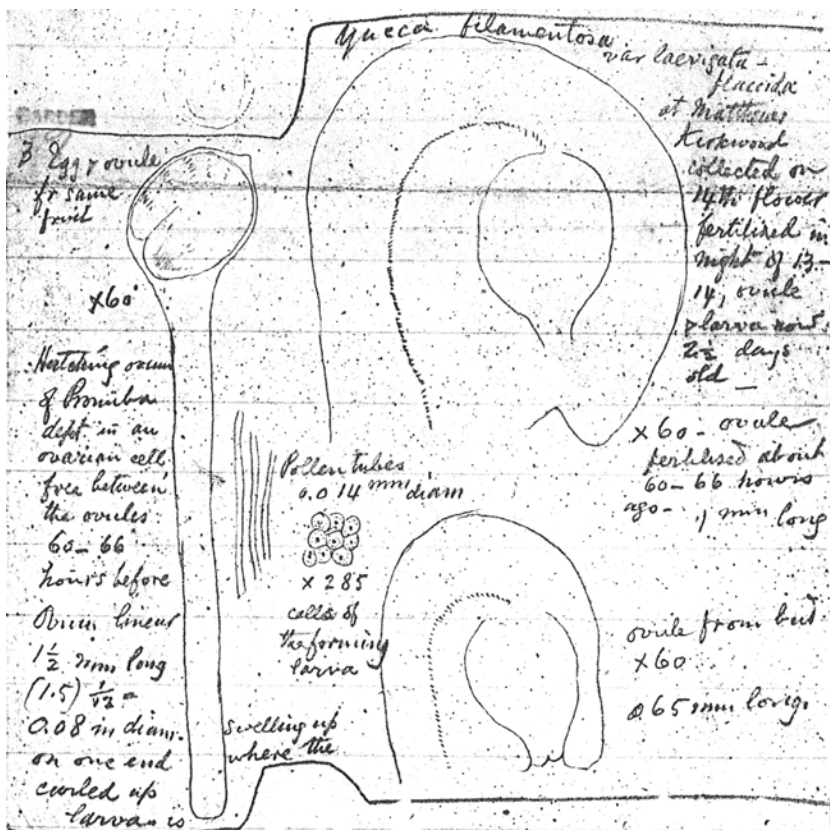 Yucca filamentosa
var laevigata -
flaccida
at Matthews
Kirkwood
collected on
14th flower
fertilized in
night of 13-
14, ovule
& larva now
2½ days
old -
GARDEN
3 Egg & ovule
fr same
fruit
x60
Hatching ovum
of Pronuba
dept in an
ovarian cell
free between
the ovules
60-66
hours before
Ovum linear
1½ mm long
(1.5) 1/12 =
0.08 in diam.
on one end
curled up
larva is
swelling up
where the
Pollen tubes
0.014 mm diam
x 285
cells of
the forming
larva
x60 - ovule
fertilised about
60-66 hours
ago - 1 mm long
ovule from bud
x60
0.65 mm long.